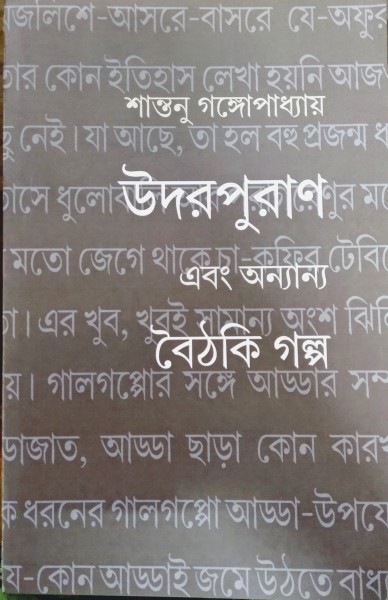 জলিশে-আসরে-বাসরে যে-অফুর
তার কোন ইতিহাস লেখা হয়নি আজ
শান্তনু গঙ্গোপাধ্যায়
নেই। যা আছে, তা হল বহু প্রজন্ম ধ
উদরপুরাণ
তাসে ধুলোর
মতো জেগে থাকে চা-কফির টেবি
এবং অন্যান্য
এর খুব, খুবই সামান্য অংশ
বৈঠকি গল্প
য়। গালগপ্পোর সঙ্গে আড্ডার সম্প
ডাজাত, আড্ডা ছাড়া কোন কারখ
ক ধরনের গালগপ্পো আড্ডা-উপযো
য-কোন আড্ডাই জমে উঠতে বাধ